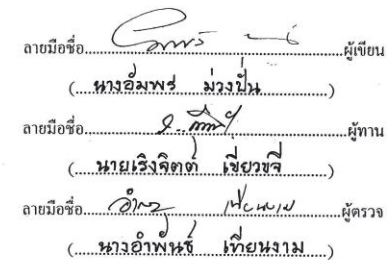 ลายมือชื่อ....................ผู้เขียน
(....นางอัมพร ม่วงปั่น....)
ลายมือชื่อ....................ผู้ทาน
(....นายเริงจิตต์ เขียวขจี....)
ลายมือชื่อ....................ผู้ตรวจ
(....นางอำพันธ์ เทียนงาม....)